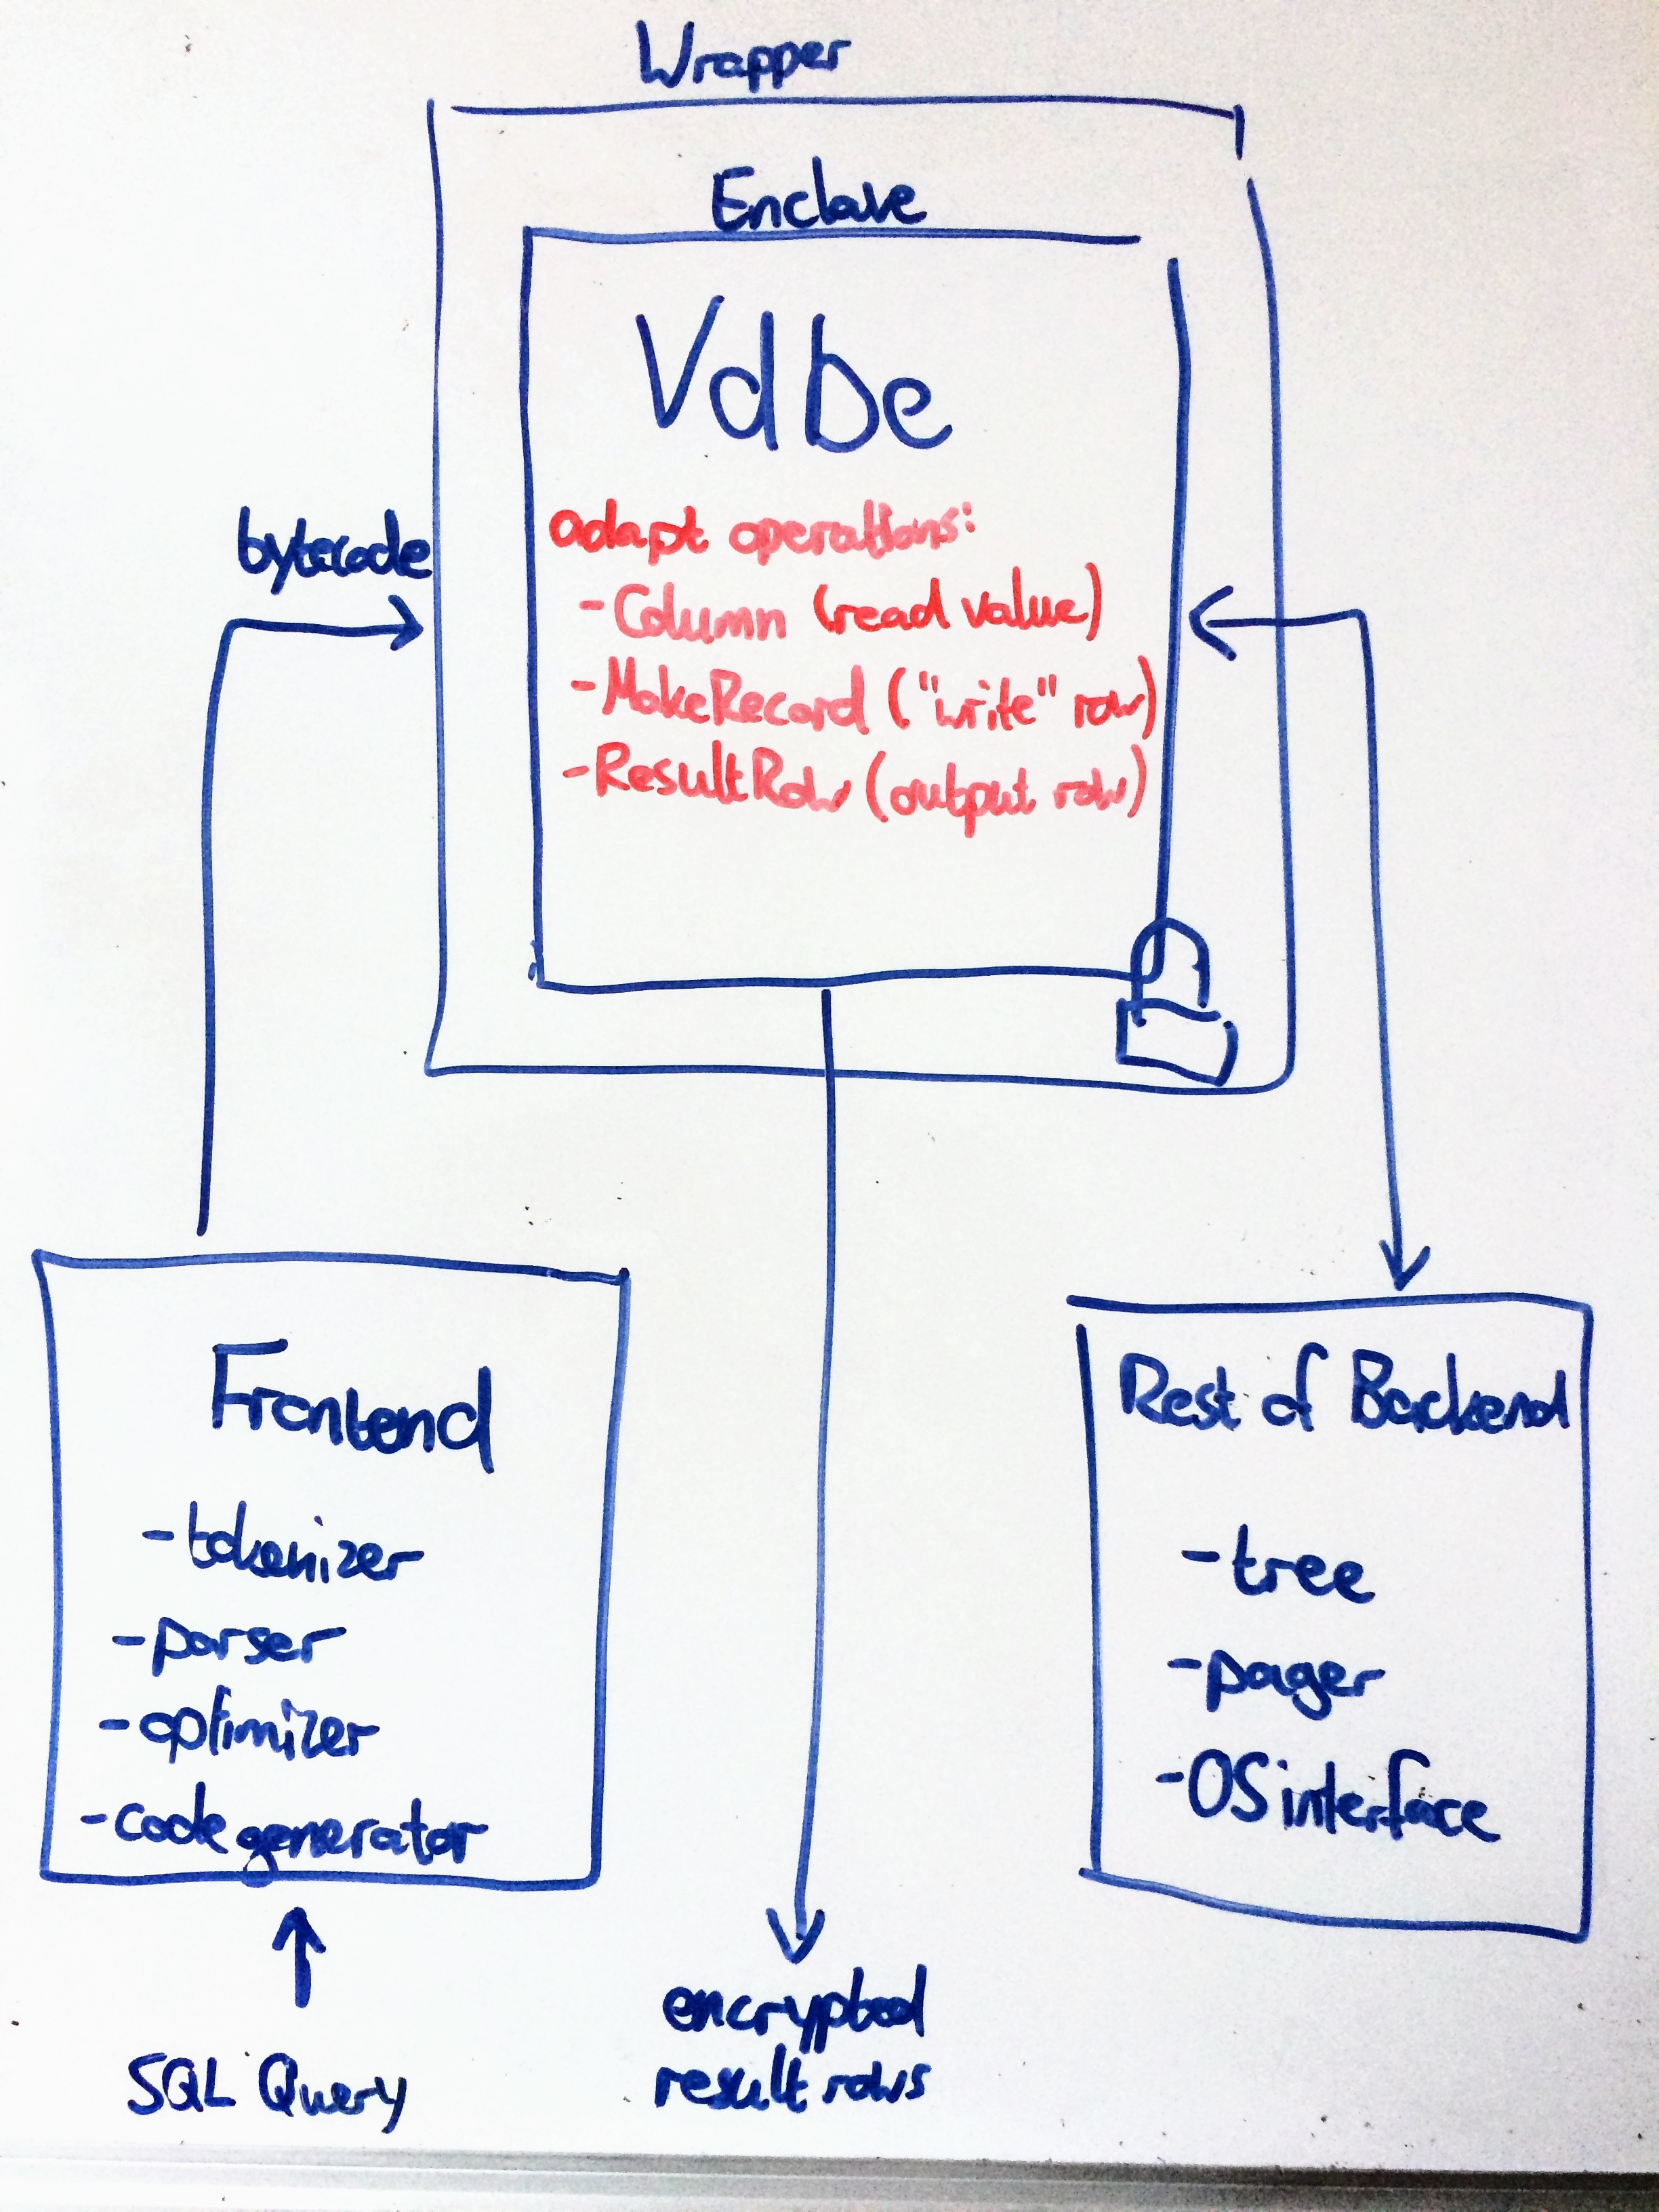 Wrapper
Enclave
Vdbe
adapt operations:
-Column (read value)
-MakeRecord ("write" row)
-ResultRow (output row)
bytecode
Frontend
-tokenizer
-parser
-optimizer
-codegenerator
SQL Query
encrypted
result rows
Rest of Backend
-tree
-pager
-OS interface